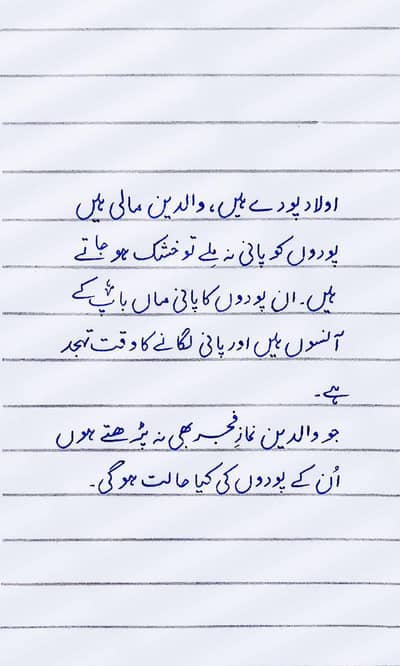 اولاد پودے ہیں، والدین مالی ہیں
پودوں کو پانی نہ ملے تو خشک ہو جاتے
ہیں۔ ان پودوں کا پانی ماں باپ کے
آنسوں ہیں اور پانی لگانے کا وقت تہجد
ہے۔
جو والدین نمازِ فجر بھی نہ پڑھتے ہوں
اُن کے پودوں کی کیا حالت ہو گی۔